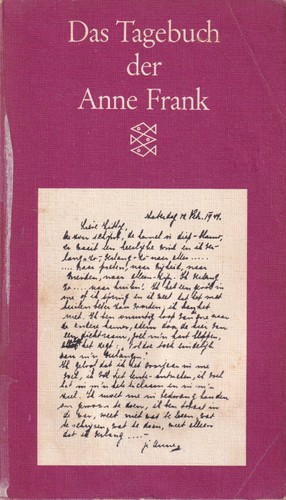 Das Tagebuch
der
Anne Frank
Zaterdag 12 Feb. 1944.
Lieve Kitty,
De zon schijnt, de hemel is diep-blauw,
er waait een heerlijke wind en ik ver-
lang - zo - verlang - zo naar alles .....
.... naar praten, naar vrijheid, naar
vrienden, naar alleen-zijn. Ik verlang
zo .... naar huilen! Ik heb een gevoel in
me of ik spring en ik weet dat het met
huilen beter zou worden, ik kan het
niet. Ik ben onrustig loop van de ene naar
de andere kamer, adem door de kier van
een dicht raam, voel m'n hart kloppen,
alsof het zegt: "Voldoe toch eindelijk
aan m'n verlangens."
Ik geloof dat ik het voorjaar in me
voel, ik voel het lente-ontwaken, ik voel
het in m'n hele lichaam en in m'n
ziel. Ik moet me in bedwang houden
om gewoon te doen, ik ben totaal in
de war, weet niet wat te lezen, wat
te schrijven, wat te doen, weet alleen
dat ik verlang .....
je Anne